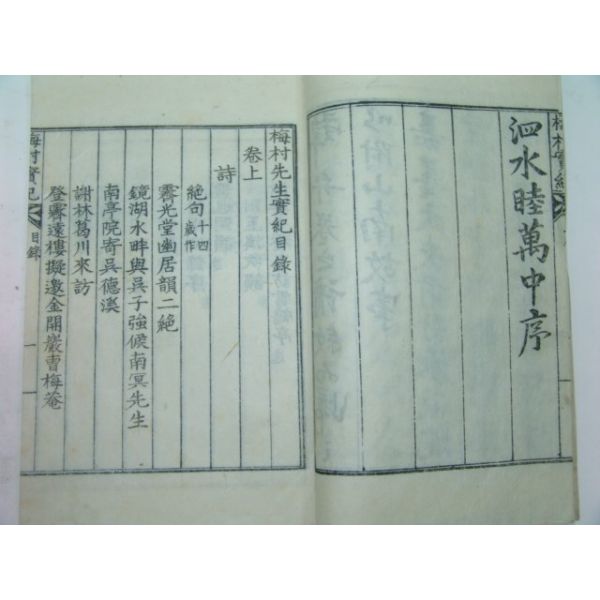 泗水睦萬中序
梅村先生實紀目錄
卷上
詩
絶句十四歲作
霽光堂幽居韻二絶
鏡湖水畔與吳子強候南冥先生
南亭院寄吳德溪
謝林葛川來訪
登霽遠樓擬邀金開巖曺梅菴
梅村實紀
目錄